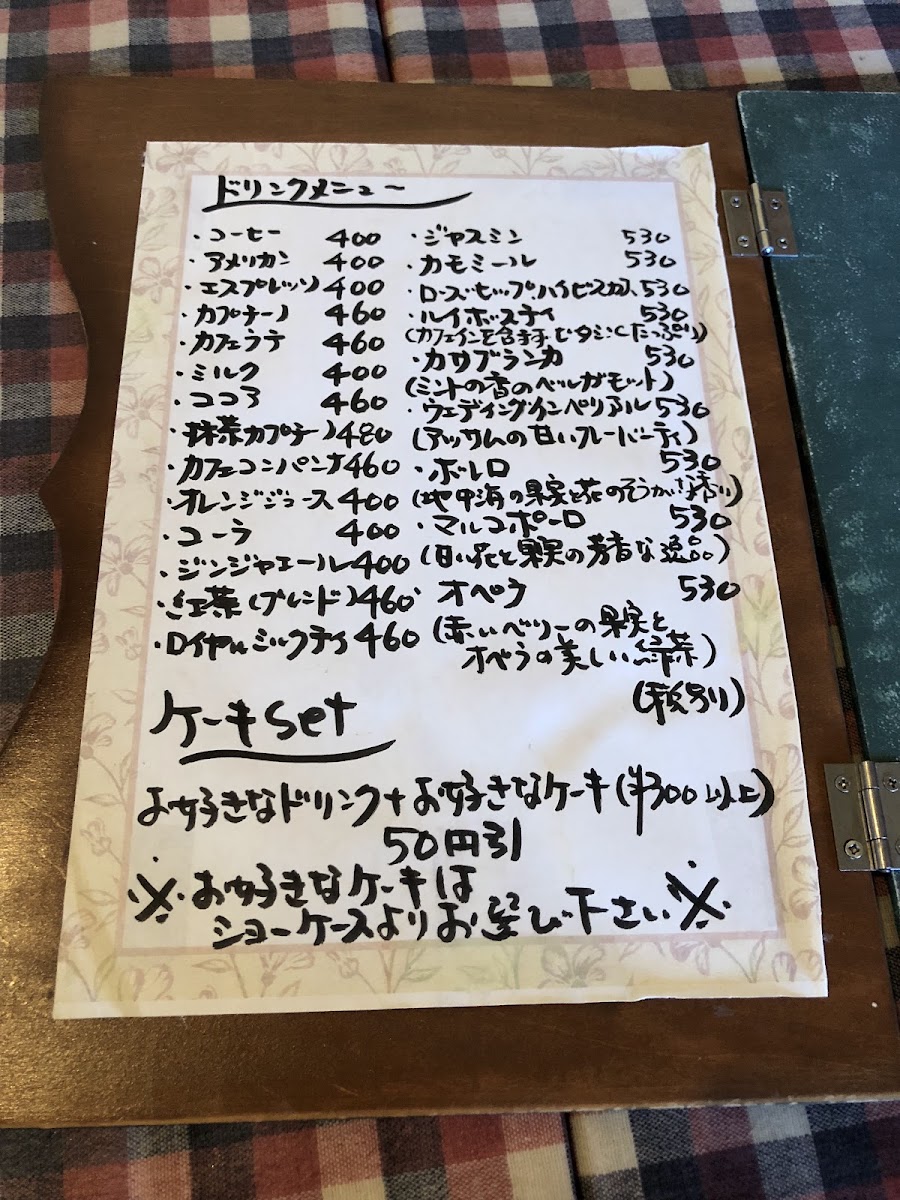 ドリンクメニュー
・コーヒー 400
・アメリカン 400
・エスプレッソ 400
・カプチーノ 460
・カフェラテ 460
・ミルク 400
・ココア 460
・抹茶カプチーノ 480
・カフェコンパンナ 460
・オレンジジュース 400
・コーラ 400
・ジンジャエール 400
・紅茶(ブレンド) 460
・ロイヤルミルクティ 460
・ジャスミン 530
・カモミール 530
・ローズヒップ・ハイビスカス 530
・ルイボスティ 530
(カフェインを含まず ビタミンCたっぷり)
・カサブランカ 530
(ミントの香のベルガモット)
・ウェディングインペリアル 530
(アッサムの甘いフレーバーティ)
・ボレロ 530
(地中海の果実と花のそうかいな香り)
・マルコポーロ 530
(甘い花と果実の芳香な逸品)
オペラ 530
(赤いベリーの果実と
オペラの美しい緑茶)
(税別)
ケーキset
お好きなドリンク+お好きなケーキ(¥300以上)
50円引
※お好きなケーキは
ショーケースよりお選び下さい※